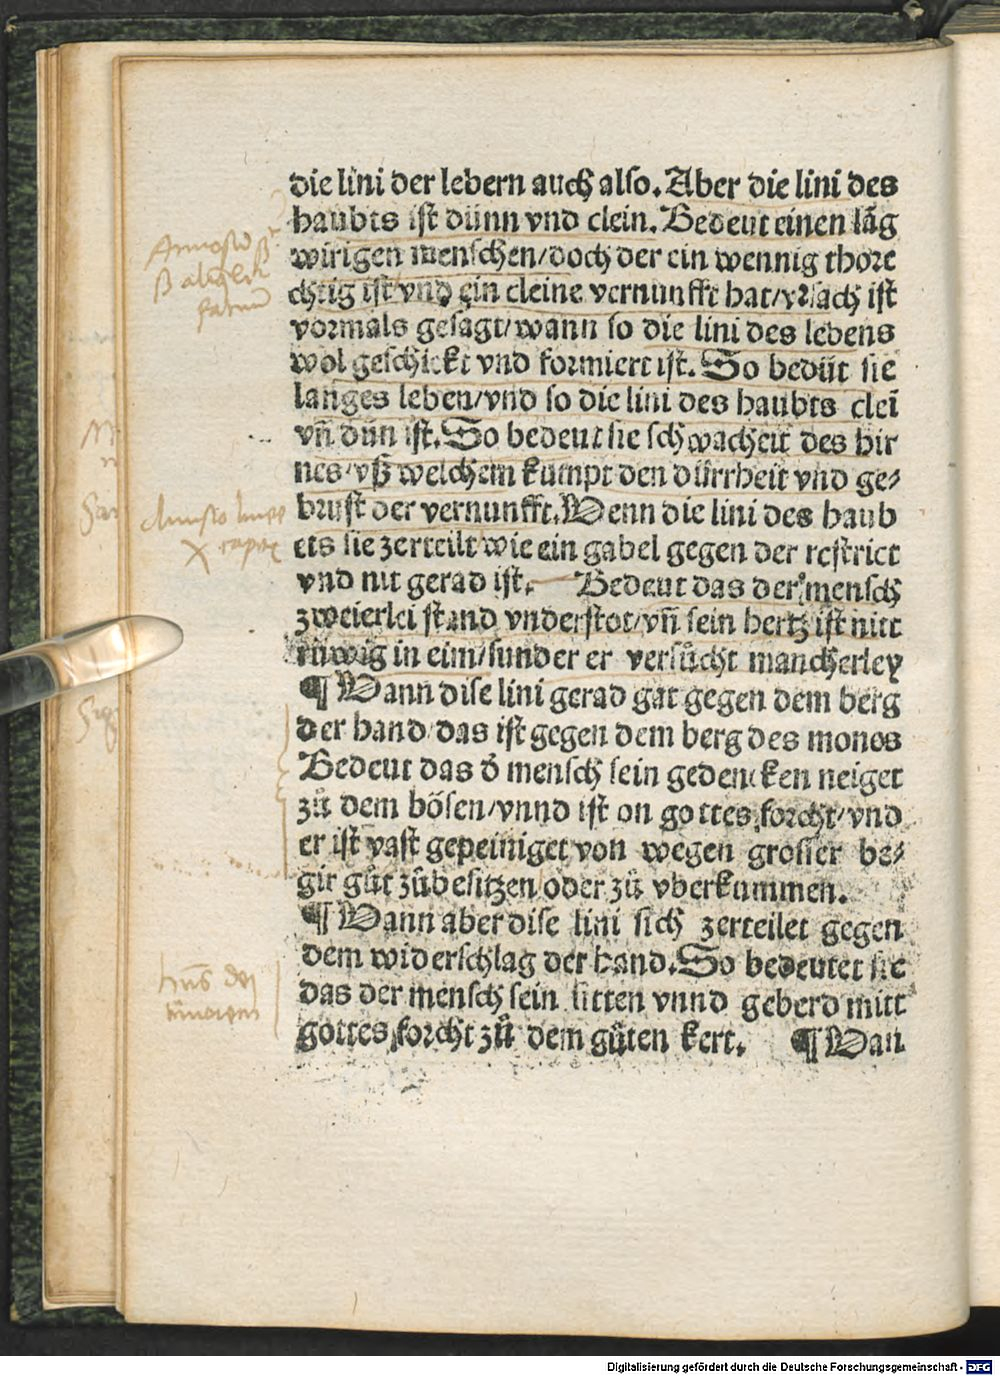 die lini der lebern auch also. Aber die lini des
haubts ist dünn vnd clein. Bedeut einen lãg
wirigen menschen/doch der ein wennig thore
chtig ist vnd ein cleine vernunfft hat/vrsach ist
vormals gesagt/wann so die lini des lebens
wol geschickt vnd formiert ist. So bedüt sie
langes leben/vnd so die lini des haubts cleĩ
vñ dün ist. So bedeut sie schwacheit des hir
nes/vß welchem kumpt den dürrheit vnd ge⸗
brust der vernunfft. Wenn die lini des haub
ets sie zerteilt wie ein gabel gegen der restrict
vnd nit gerad ist. Bedeut das der mensch
zweierlei stand vnderstot/vñ sein hertz ist nitt
rüwig in eim/sunder er versůcht mancherley
¶ Wann dise lini gerad gat gegen dem berg
der hand/das ist gegen dem berg des monos
Bedeut das d̕ mensch sein gedencken neiget
zů dem bösen/vnnd ist on gottes forcht/vnd
er ist vast gepeiniget von wegen grosser be⸗
gir gůt zůbesitzen oder zů vberkummen.
¶ Wann aber dise lini sich zerteilet gegen
dem widerschlag der hand. So bedeutet sie
das der mensch sein sitten vnnd geberd mitt
gottes forcht zů dem gůten kert. ¶ Wan
Digitalisierung gefördert durch die Deutsche Forschungsgemeinschaft - DFG